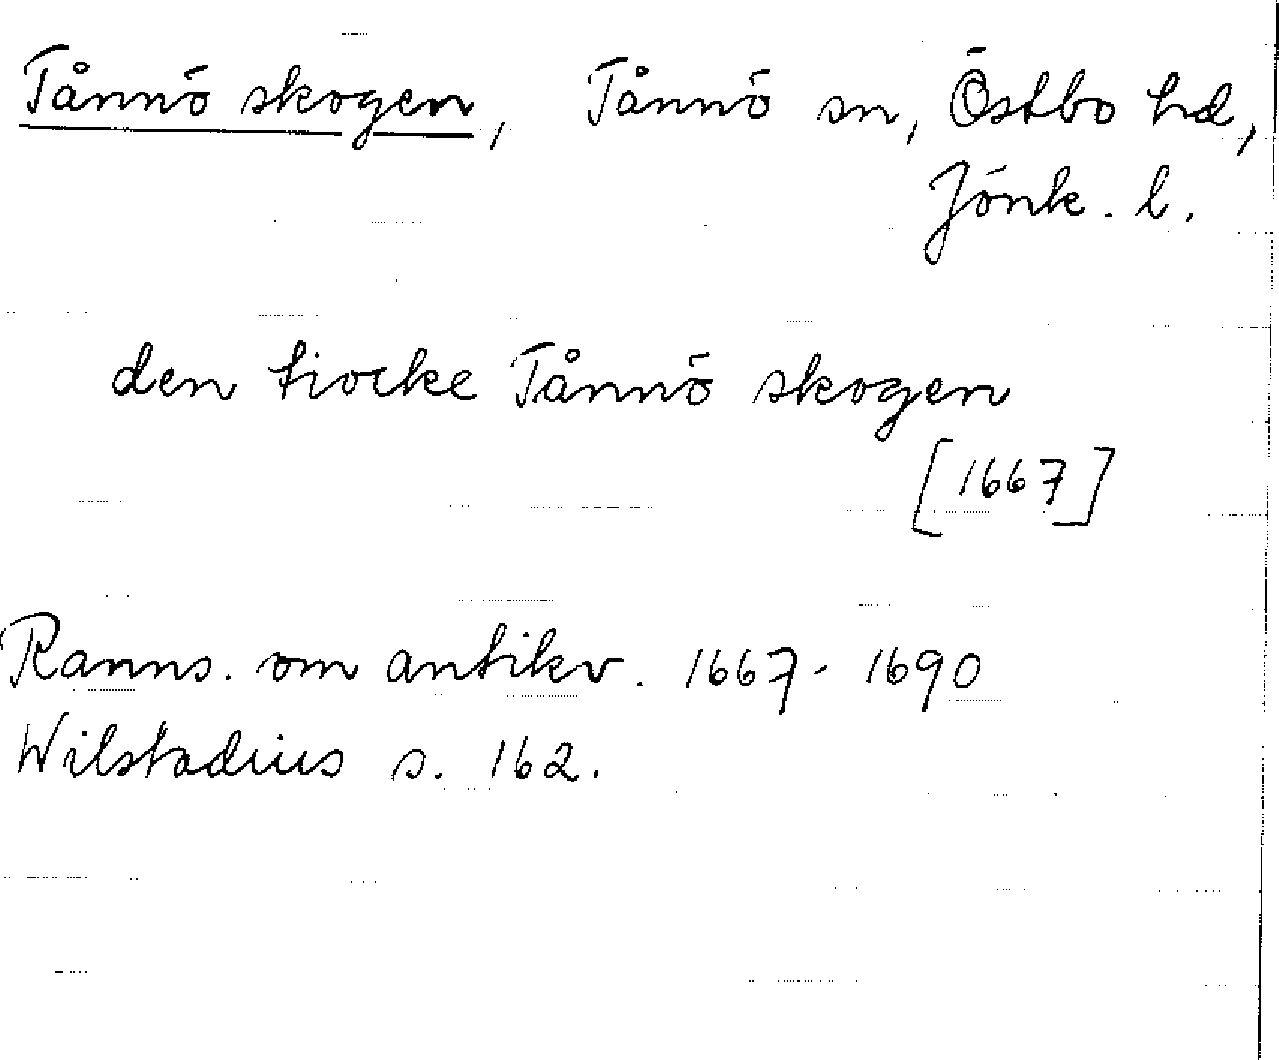 Tånnö skogen, Tånnö sn, Östbo hd,
Jönk. l.
den tiocke Tånnö skogen
[1667]
Ranns. om antikv. 1667-1690
Wilstadius s. 162.